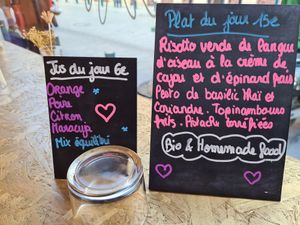 Jus du jour 6e
Orange
Poire
Citron
Maracuja
Mix équilibri
Plat du jour 15e
Risotto verde de langue
d'oiseau à la crème de
cajou et d'épinard frais
Pesto de basilic Thaï et
Coriandre. Topinambours
frits. Pistache torréfiées
Bio & Homemade food